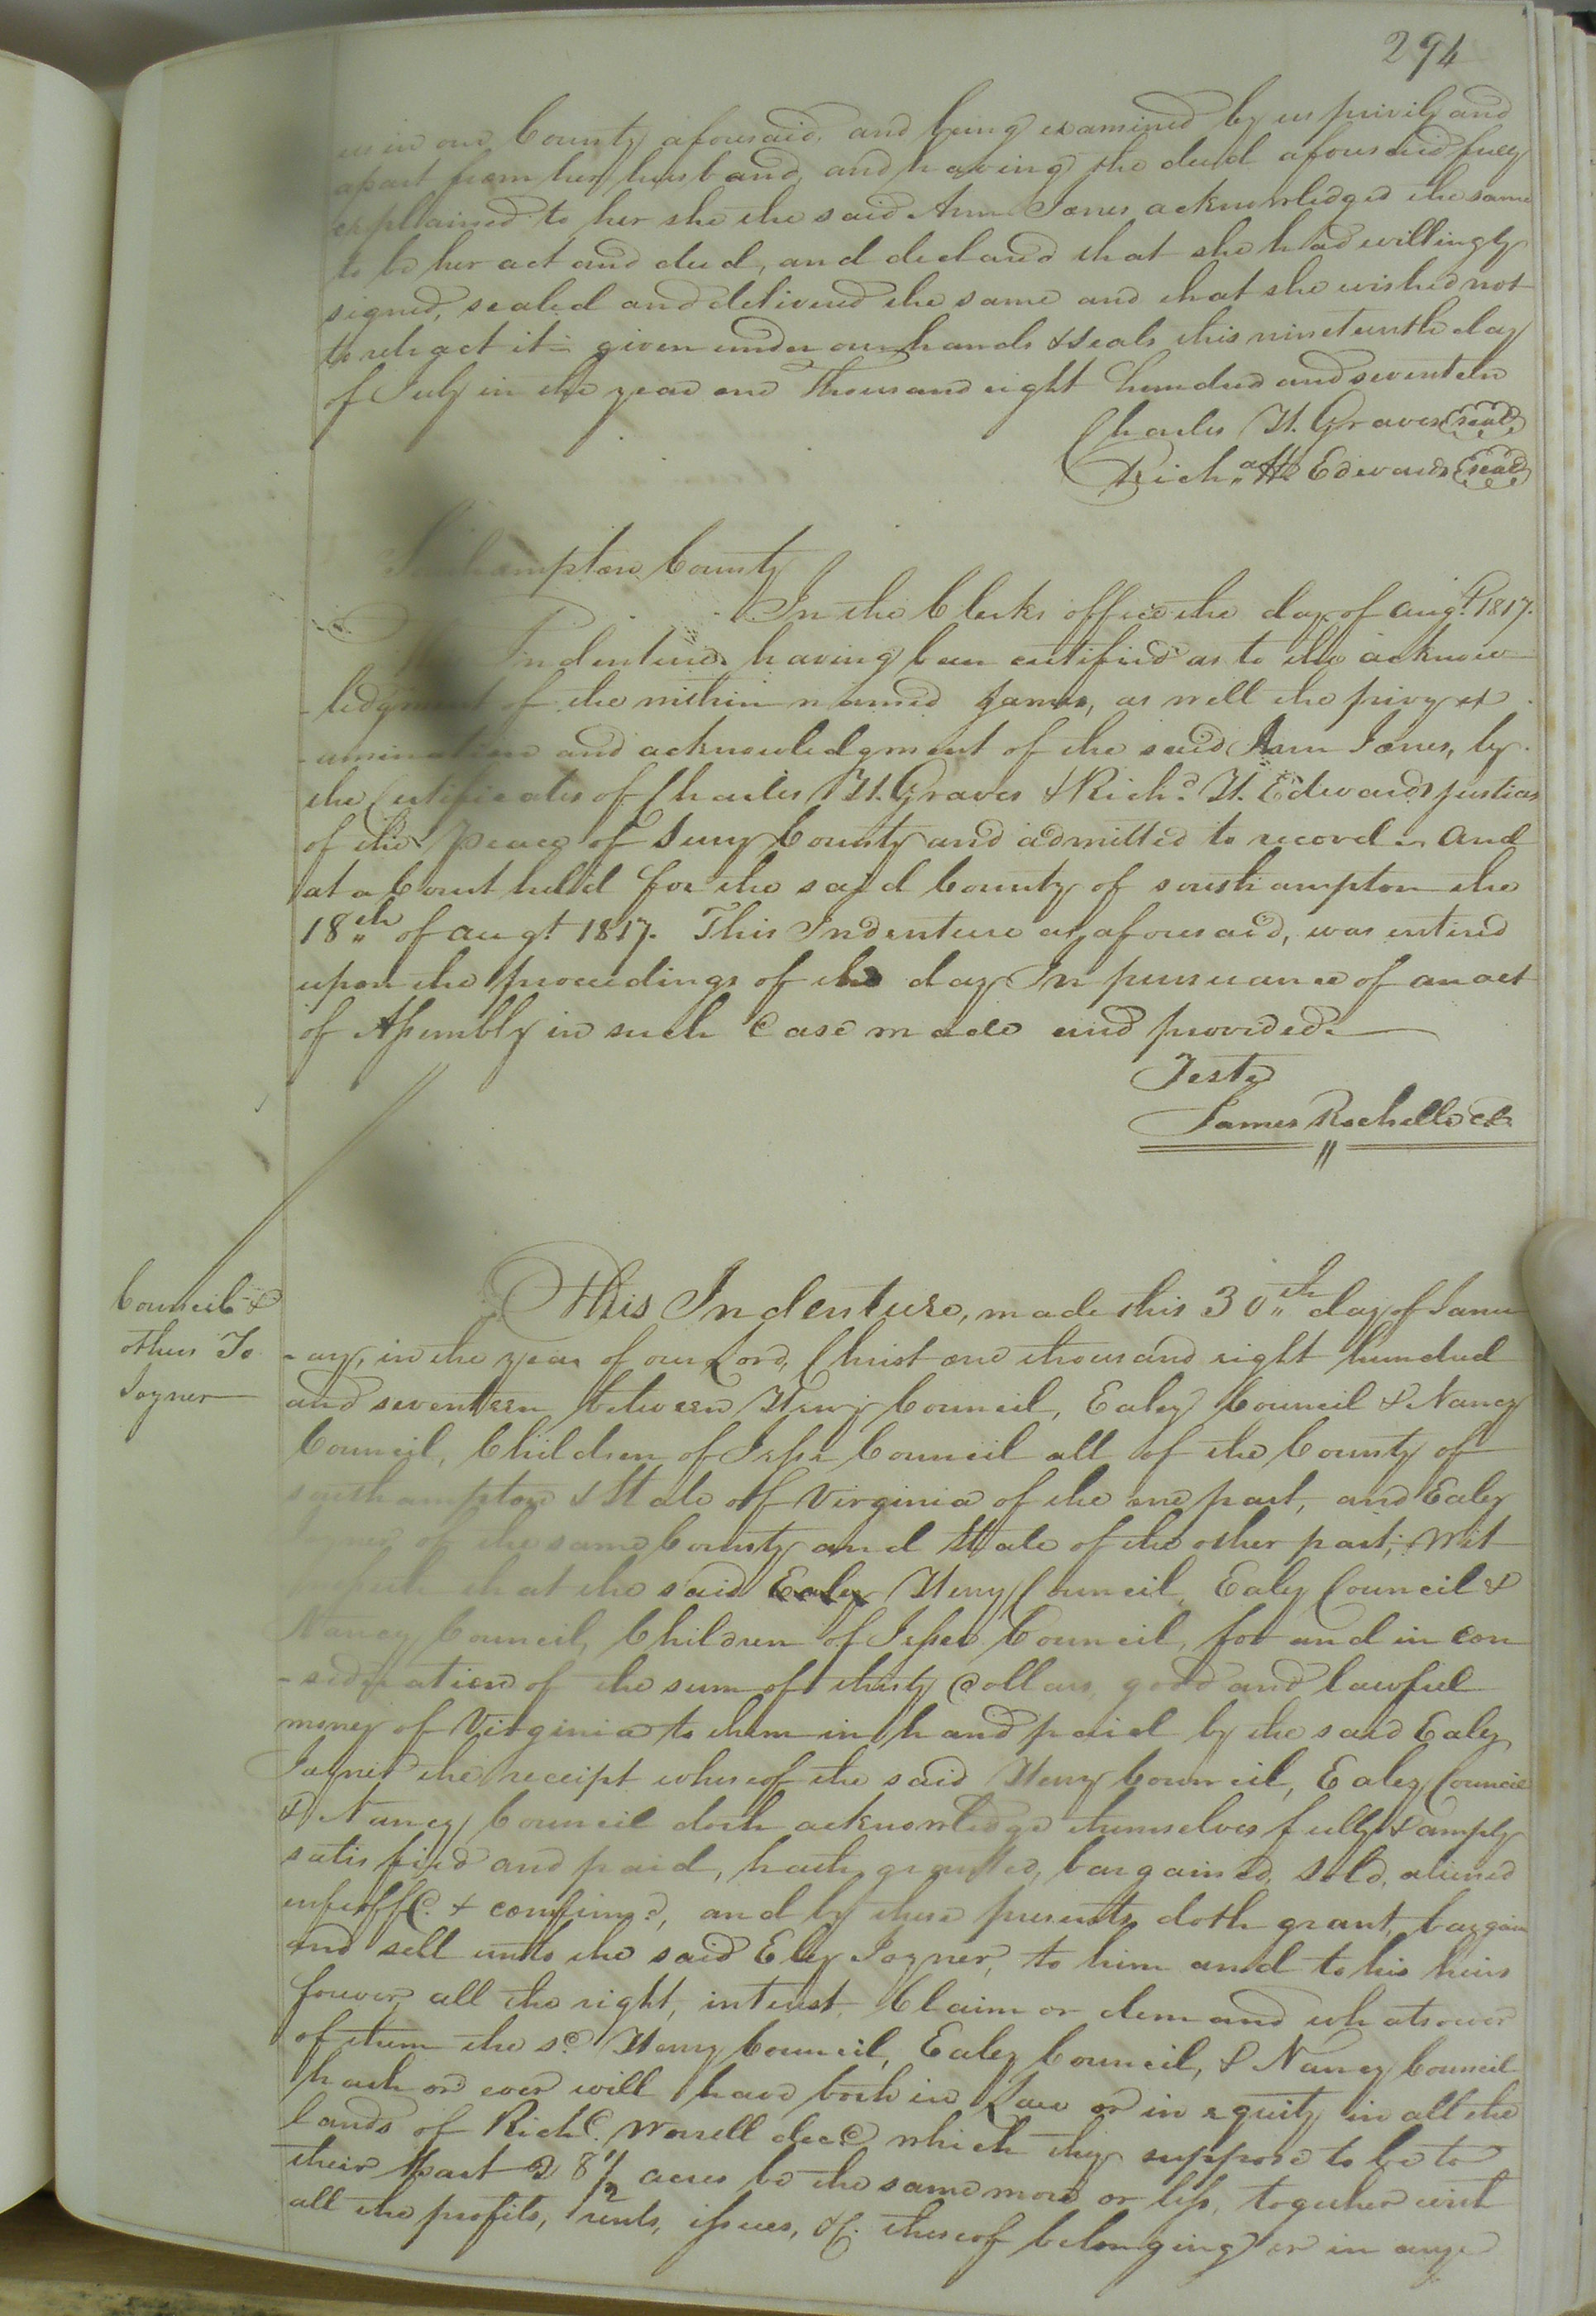 294
us in our County aforesaid, and being examined by us privily and
apart from her husband, and having the deed aforesaid fully
explained to her she the said Ann Jones acknowledged the same
to be her act and deed, and declared that she had willingly
signed, sealed and delivered the same and that she wished not
to retract it - given under our hands & seals this nineteenth day
of July in the year one Thousand eight hundred and seventeen
Charles H. Graves seal
Richd H Edwards seal
Southampton County
In the Clerks office the day of augt. 1817.
Indenture having been certified as to the acknow
-ledgment of the within named James, as well the privy ex
-amination and acknowledgment of the said Ann Jones, by
the Certificates of Charles H. Graves & Richd. H. Edwards justices
of the Peace of Surry County and admitted to record. And
at a Court held for the said County of southampton the
18th of augt. 1817. This Indenture as aforesaid, was entired
upon the proceedings of the day In pursuance of an act
of Assembly in such Case made and provided.
Teste
James Rochelle Cl.
Council &
others To
Joyner
This Indenture, made this 30th day of Janu
-ary, in the year of our Lord, Christ one thousand eight hundred
and seventeen between Henry Council, Ealey Council & Nancy
Council, Children of Jesse Council all of the County of
southampton & State of Virginia of the one part, and Ealey
Joyner of the same County and State of the other part; Wit
that the said Ealey Henry Council, Ealey Council &
Nancy Council, Children of Jesse Council, for and in con
-sideration of the sum of thirty Dollars, good and lawful
money of Virginia to them in hand paid by the said Ealey
Joyner the receipt whereof the said Henry Council, Ealey Council
& Nancy Council doth acknowledge themselves fully & amply
satisfied and paid, hath granted, bargained, sold, aliened
enfeoffd. & confirmd., and by these presents doth grant, bargain
and sell unto the said Eley Joyner, to him and to his heirs
forever all the right, interest, Claim or demand whatsoever
of them the sd. Henry Council, Ealey Council, & Nancy Council
hath or ever will have both in Law or in equity in all the
lands of Richd. Worrell decd. which they suppose to be to
their part 8 1/2 acres be the same more or less, together with
all the profits, rents, issues, &c. thereof belonging or in any